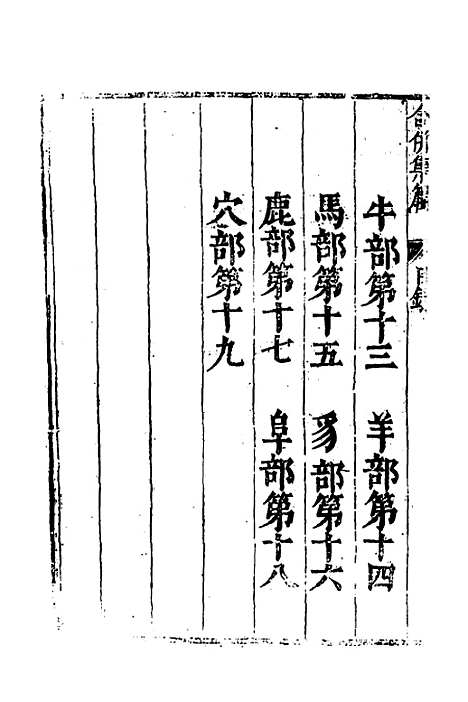 牛部第十三 羊部第十四
馬部第十五 豸部第十六
鹿部第十七 阜部第十八
穴部第十九